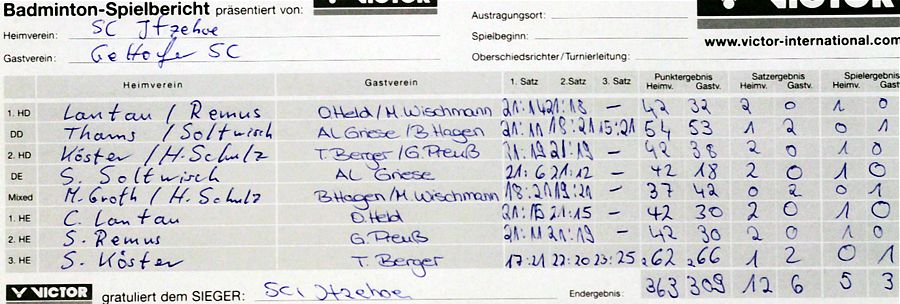 Badminton-Spielbericht präsentiert von: VICTOR
Heimverein: SC Itzehoe
Gastverein: Gettorfer SC
Austragungsort:
Spielbeginn:
Oberschiedsrichter/Turnierleitung:
www.victor-international.com
Heimverein Gastverein 1. Satz 2. Satz 3. Satz Punktergebnis Heimv. Gastv. Satzergebnis Heimv. Gastv. Spielergebnis Heimv. Gastv.
1. HD Lantau / Remus O.Held / M.Wischmann 21:14 21:18 – 42 32 2 0 1 0
DD Thams / Soltwisch AL Griese / B Hagen 21:11 18:21 15:21 54 53 1 2 0 1
2. HD Köster / H.Schulz T.Berger / G.Preuß 21:19 21:19 – 42 38 2 0 1 0
DE S. Soltwisch AL Griese 21:6 21:12 – 42 18 2 0 1 0
Mixed M.Groth / H. Schulz B Hagen / M.Wischmann 18:21 19:21 – 37 42 0 2 0 1
1. HE C. Lantau O.Held 21:15 21:15 – 42 30 2 0 1 0
2. HE S. Remus G.Preuß 21:11 21:19 – 42 30 2 0 1 0
3. HE S. Köster T. Berger 17:21 22:20 23:25 62 66 1 2 0 1
VICTOR gratuliert dem SIEGER: SC Itzehoe Endergebnis: 363 309 12 6 5 3